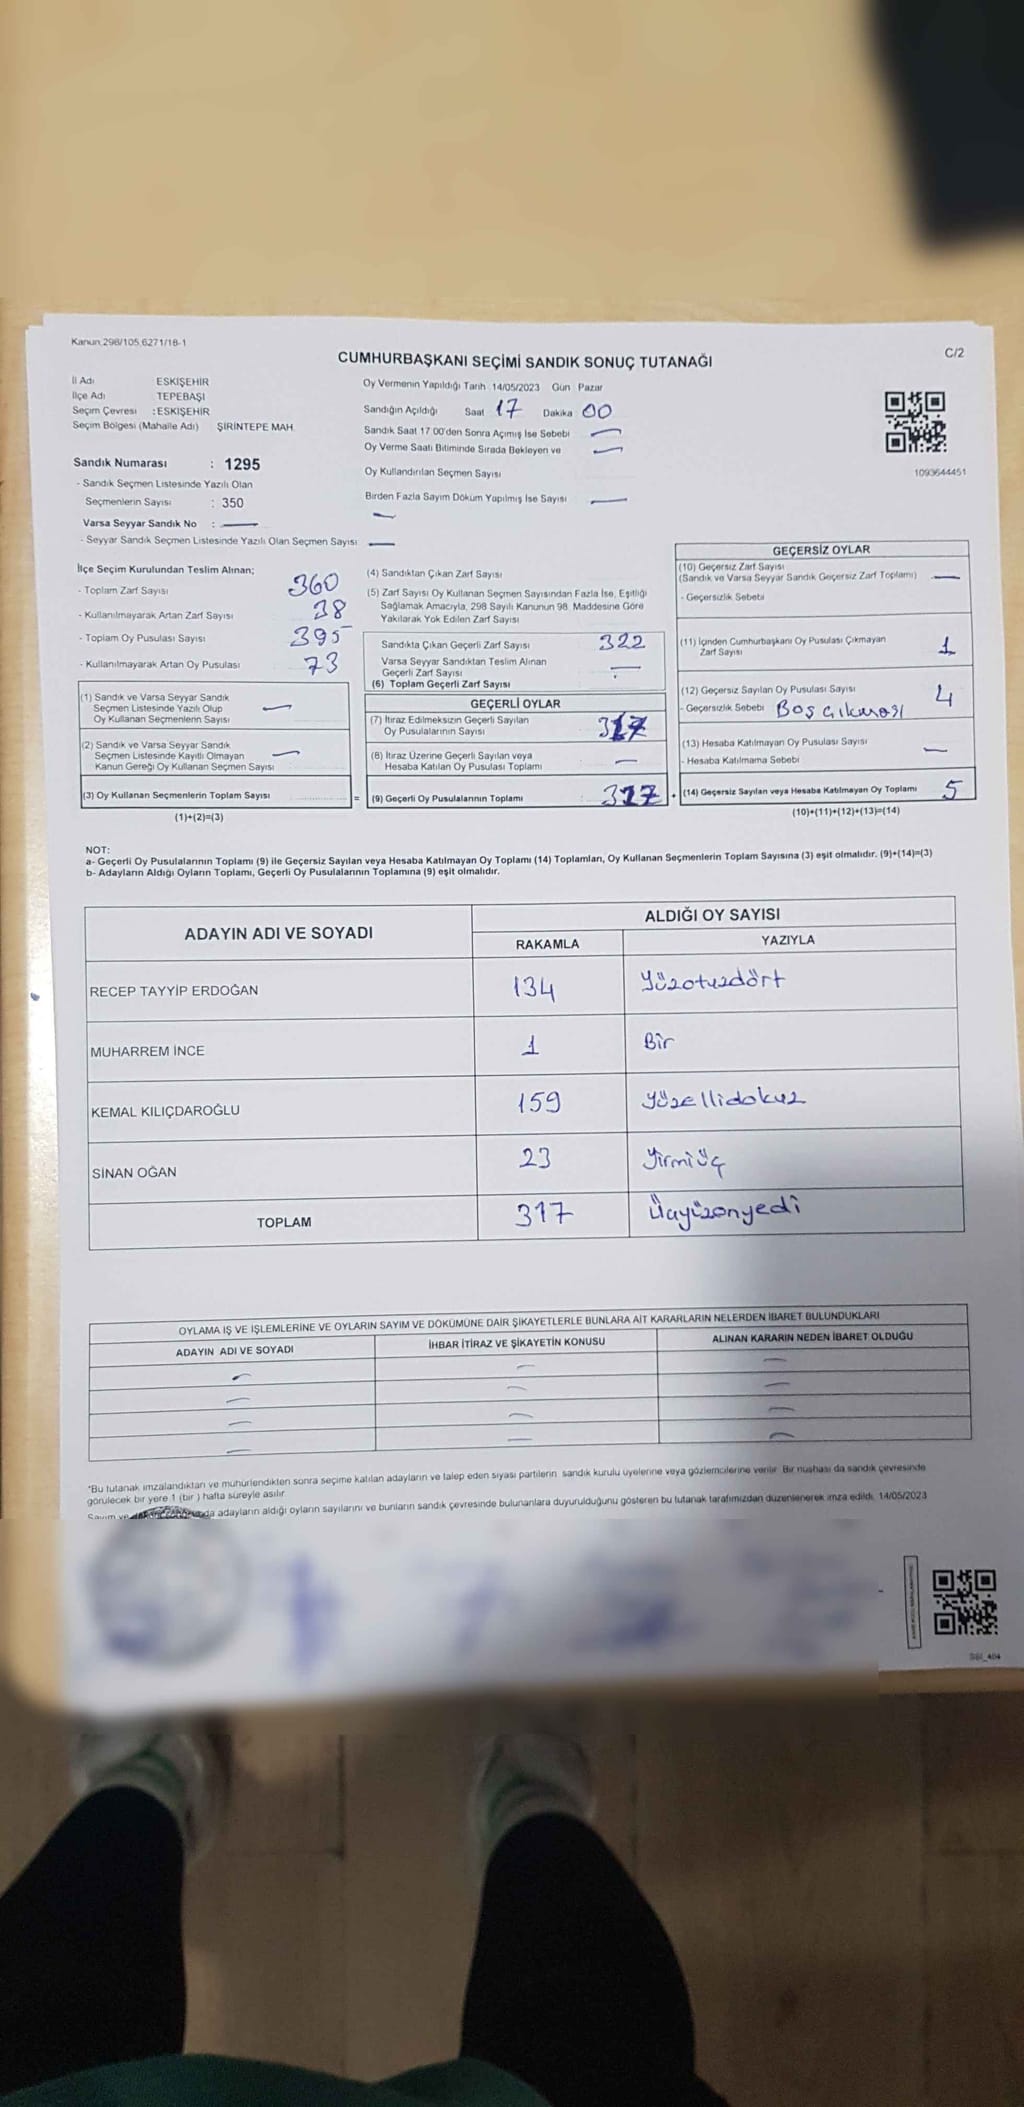 Kanun.298/105,6271/18-1
C/2
CUMHURBAŞKANI SEÇİMİ SANDIK SONUÇ TUTANAĞI
İl Adı ESKİŞEHİR
İlçe Adı TEPEBAŞI
Seçim Çevresi : ESKİŞEHİR
Seçim Bölgesi (Mahalle Adı) ŞİRİNTEPE MAH.
Sandık Numarası : 1295
- Sandık Seçmen Listesinde Yazılı Olan
Seçmenlerin Sayısı : 350
Varsa Seyyar Sandık No :
- Seyyar Sandık Seçmen Listesinde Yazılı Olan Seçmen Sayısı
Oy Vermenin Yapıldığı Tarih 14/05/2023 Gün Pazar
Sandığın Açıldığı Saat 17 Dakika 00
Sandık Saat 17 00'den Sonra Açımış İse Sebebi
Oy Verme Saati Bitiminde Sırada Bekleyen ve
Oy Kullandırılan Seçmen Sayısı
Birden Fazla Sayım Döküm Yapılmış İse Sayısı
1093644451
İlçe Seçim Kurulundan Teslim Alınan;
- Toplam Zarf Sayısı 360
- Kullanılmayarak Artan Zarf Sayısı 38
- Toplam Oy Pusulası Sayısı 395
- Kullanılmayarak Artan Oy Pusulası 73
(1) Sandık ve Varsa Seyyar Sandık
Seçmen Listesinde Yazılı Olup
Oy Kullanan Seçmenlerin Sayısı
(2) Sandık ve Varsa Seyyar Sandık
Seçmen Listesinde Kayıtlı Olmayan
Kanun Gereği Oy Kullanan Seçmen Sayısı
(3) Oy Kullanan Seçmenlerin Toplam Sayısı =
(1)+(2)=(3)
(4) Sandıktan Çıkan Zarf Sayısı
(5) Zarf Sayısı Oy Kullanan Seçmen Sayısından Fazla İse, Eşitliği
Sağlamak Amacıyla, 298 Sayılı Kanunun 98. Maddesine Göre
Yakılarak Yok Edilen Zarf Sayısı
Sandıkta Çıkan Geçerli Zarf Sayısı 322
Varsa Seyyar Sandıktan Teslim Alınan
Geçerli Zarf Sayısı
(6) Toplam Geçerli Zarf Sayısı
GEÇERLİ OYLAR
(7) İtiraz Edilmeksizin Geçerli Sayılan
Oy Pusulalarının Sayısı 317
(8) İtiraz Üzerine Geçerli Sayılan veya
Hesaba Katılan Oy Pusulası Toplamı
(9) Geçerli Oy Pusulalarının Toplamı 317 +
GEÇERSİZ OYLAR
(10) Geçersiz Zarf Sayısı
(Sandık ve Varsa Seyyar Sandık Geçersiz Zarf Toplamı)
- Geçersizlik Sebebi
(11) İçinden Cumhurbaşkanı Oy Pusulası Çıkmayan
Zarf Sayısı 1
(12) Geçersiz Sayılan Oy Pusulası Sayısı 4
- Geçersizlik Sebebi Boş çıkması
(13) Hesaba Katılmayan Oy Pusulası Sayısı
- Hesaba Katılmama Sebebi
(14) Geçersiz Sayılan veya Hesaba Katılmayan Oy Toplamı 5
(10)+(11)+(12)+(13)=(14)
NOT:
a- Geçerli Oy Pusulalarının Toplamı (9) ile Geçersiz Sayılan veya Hesaba Katılmayan Oy Toplamı (14) Toplamları, Oy Kullanan Seçmenlerin Toplam Sayısına (3) eşit olmalıdır. (9)+(14)=(3)
b- Adayların Aldığı Oyların Toplamı, Geçerli Oy Pusulalarının Toplamına (9) eşit olmalıdır.
ADAYIN ADI VE SOYADI ALDIĞI OY SAYISI
RAKAMLA YAZIYLA
RECEP TAYYİP ERDOĞAN 134 Yüzotuzdört
MUHARREM İNCE 1 Bir
KEMAL KILIÇDAROĞLU 159 yüzellidokuz
SİNAN OĞAN 23 Yirmiüç
TOPLAM 317 Üçyüzonyedi
OYLAMA İŞ VE İŞLEMLERİNE VE OYLARIN SAYIM VE DÖKÜMÜNE DAİR ŞİKAYETLERLE BUNLARA AİT KARARLARIN NELERDEN İBARET BULUNDUKLARI
ADAYIN ADI VE SOYADI İHBAR İTİRAZ VE ŞİKAYETİN KONUSU ALINAN KARARIN NEDEN İBARET OLDUĞU
*Bu tutanak imzalandıktan ve mühürlendikten sonra seçime katılan adayların ve talep eden siyasi partilerin sandık kurulu üyelerine veya gözlemcilerine verilir. Bir nüshası da sandık çevresinde
görülecek bir yere 1 (bir ) hafta süreyle asılır.
Sayım ve adayların aldığı oyların sayılarını ve bunların sandık çevresinde bulunanlara duyurulduğunu gösteren bu tutanak tarafımızdan düzenlenerek imza edildi. 14/05/2023